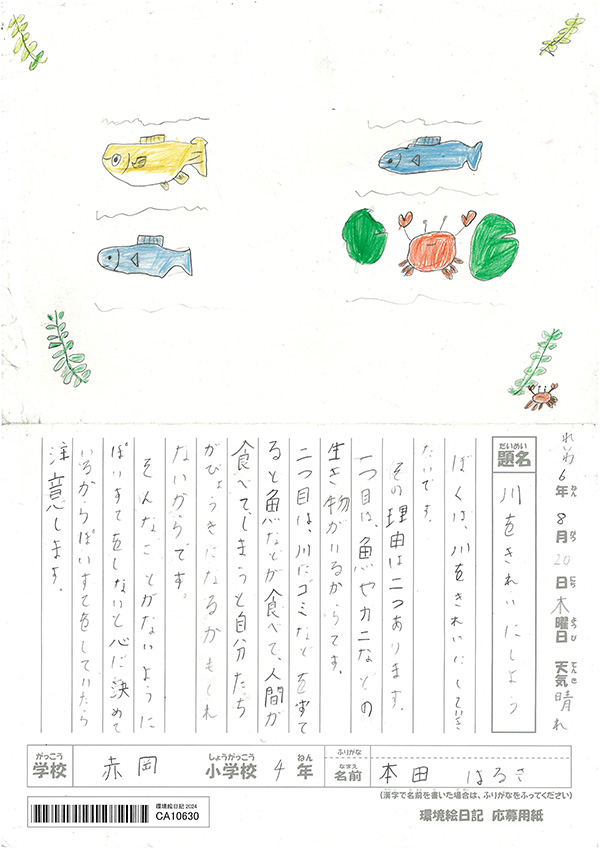 れいわ6年 8月20日 木曜日 天気 晴れ
ねん がつ にち ようび てんき
だいめい
題名 川をきれいにしよう
ぼくは、川をきれいにしていき
たいです。
その理由は二つあります。
一つ目は、魚やカニなどの
生き物がいるからです。
二つ目は、川にゴミなどをすて
ると魚などが食べて、人間が
食べて、しまうと自分たち
がびょうきになるかもしれ
ないからです。
そんなことがないように
ぽいすてをしないと心に決めて
いるからぽいすてをしていたら
注意します。
がっこう しょうがっこう ねん ふりがな
学校 赤岡 小学校 4年 なまえ 名前 本田 はるき
(漢字で名前を書いた場合は、ふりがなをふってください)
環境絵日記2024
CA10630
環境絵日記 応募用紙